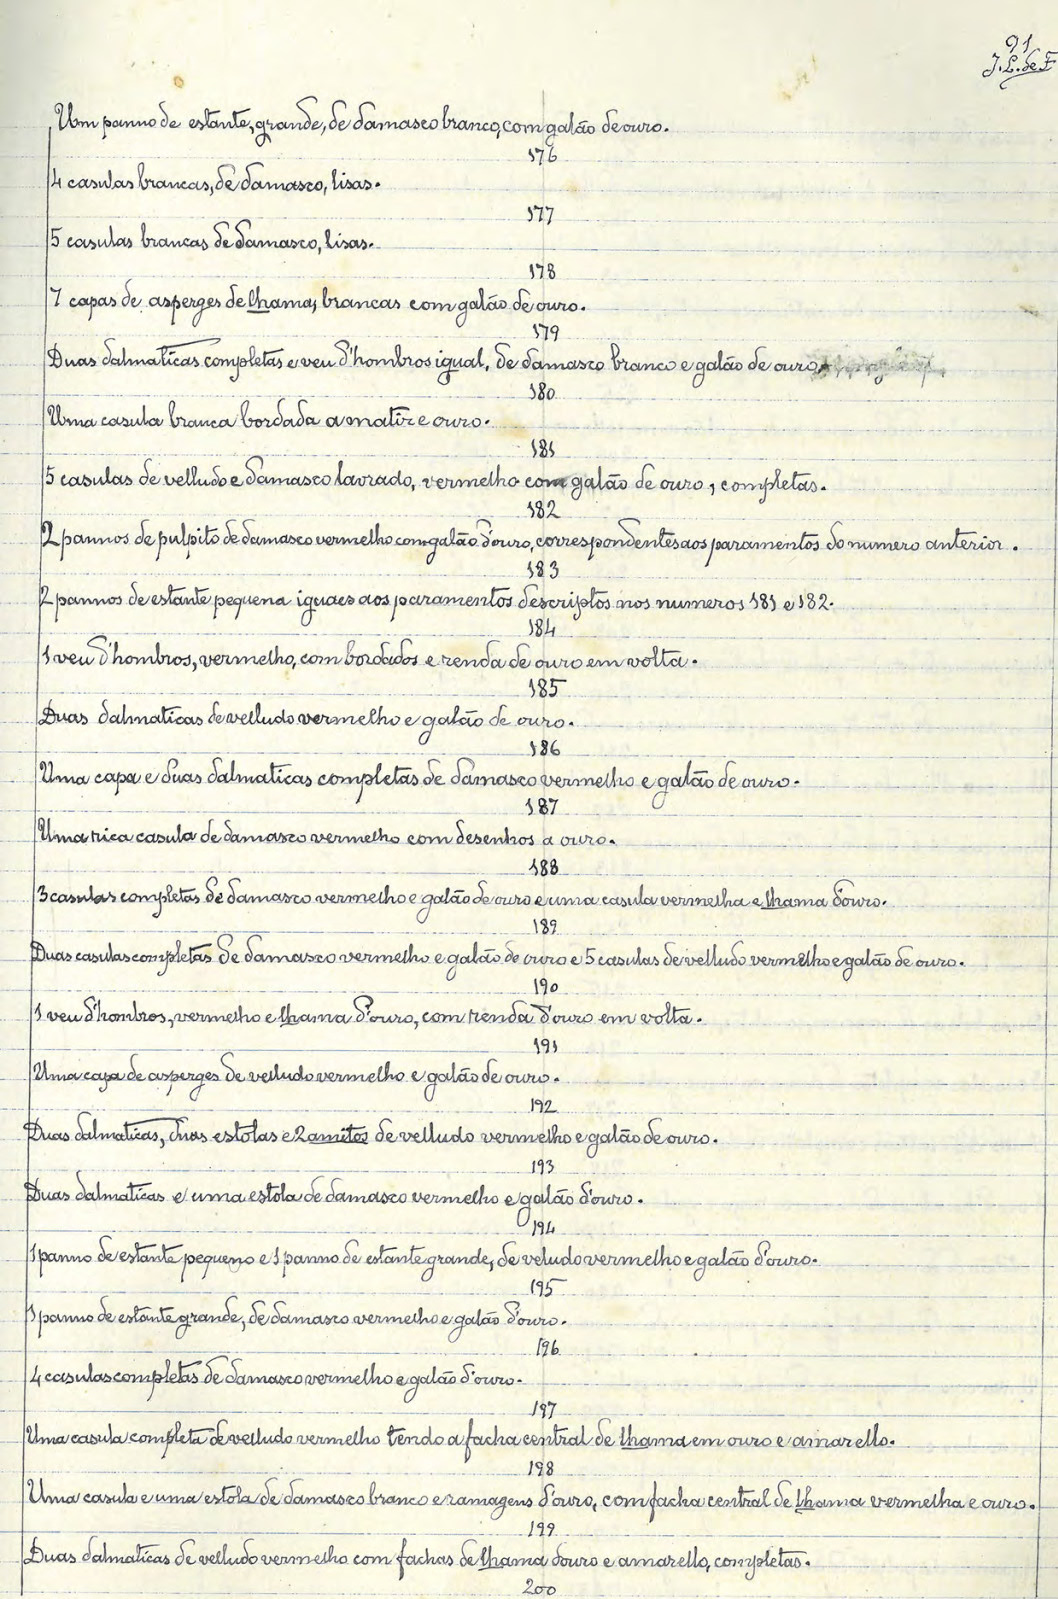 91
J. L. de F
Um panno de estante, grande, de damasco branco, com galão de ouro.
176
4 casulas brancas, de damasco, lisas.
177
5 casulas brancas de damasco, lisas.
178
7 capas de asperges de lhama, brancas com galão de ouro.
179
Duas dalmaticas completas e veu d'hombros igual, de damasco branco e galão de ouro
180
Uma casula branca bordada a matiz e ouro.
181
5 casulas de velludo e damasco lavrado, vermelho com galão de ouro, completas.
182
2 pannos de pulpito de damasco vermelho com galão d'ouro, correspondentes aos paramentos do numero anterior.
183
2 pannos de estante pequena iguaes aos paramentos descriptos nos numeros 181 e 182.
184
1 veu d'hombros, vermelho, com bordados e renda de ouro em volta.
185
Duas dalmaticas de velludo vermelho e galão de ouro.
186
Uma capa e duas dalmaticas completas de damasco vermelho e galão de ouro.
187
Uma rica casula de damasco vermelho com desenhos a ouro.
188
3 casulas completas de damasco vermelho e galão de ouro e uma casula vermelha e lhama d'ouro.
189
Duas casulas completas de damasco vermelho e galão de ouro e 5 casulas de velludo vermelho e galão de ouro.
190
1 veu d'hombros, vermelho e lhama d'ouro, com renda d'ouro em volta.
191
Uma capa de asperges de velludo vermelho e galão de ouro.
192
Duas dalmaticas, duas estolas e 2 amitos de velludo vermelho e galão de ouro.
193
Duas dalmaticas e uma estola de damasco vermelho e galão d'ouro.
194
1 panno de estante pequeno e 1 panno de estante grande, de veludo vermelho e galão d'ouro.
195
1 panno de estante grande, de damasco vermelho e galão d'ouro.
196
4 casulas completas de damasco vermelho e galão d'ouro.
197
Uma casula completa de velludo vermelho tendo a facha central de lhama em ouro e amarello.
198
Uma casula e uma estola de damasco branco e ramagens d'ouro, com facha central de lhama vermelha e ouro.
199
Duas dalmaticas de velludo vermelho com fachas de lhama douro e amarello, completas.
200